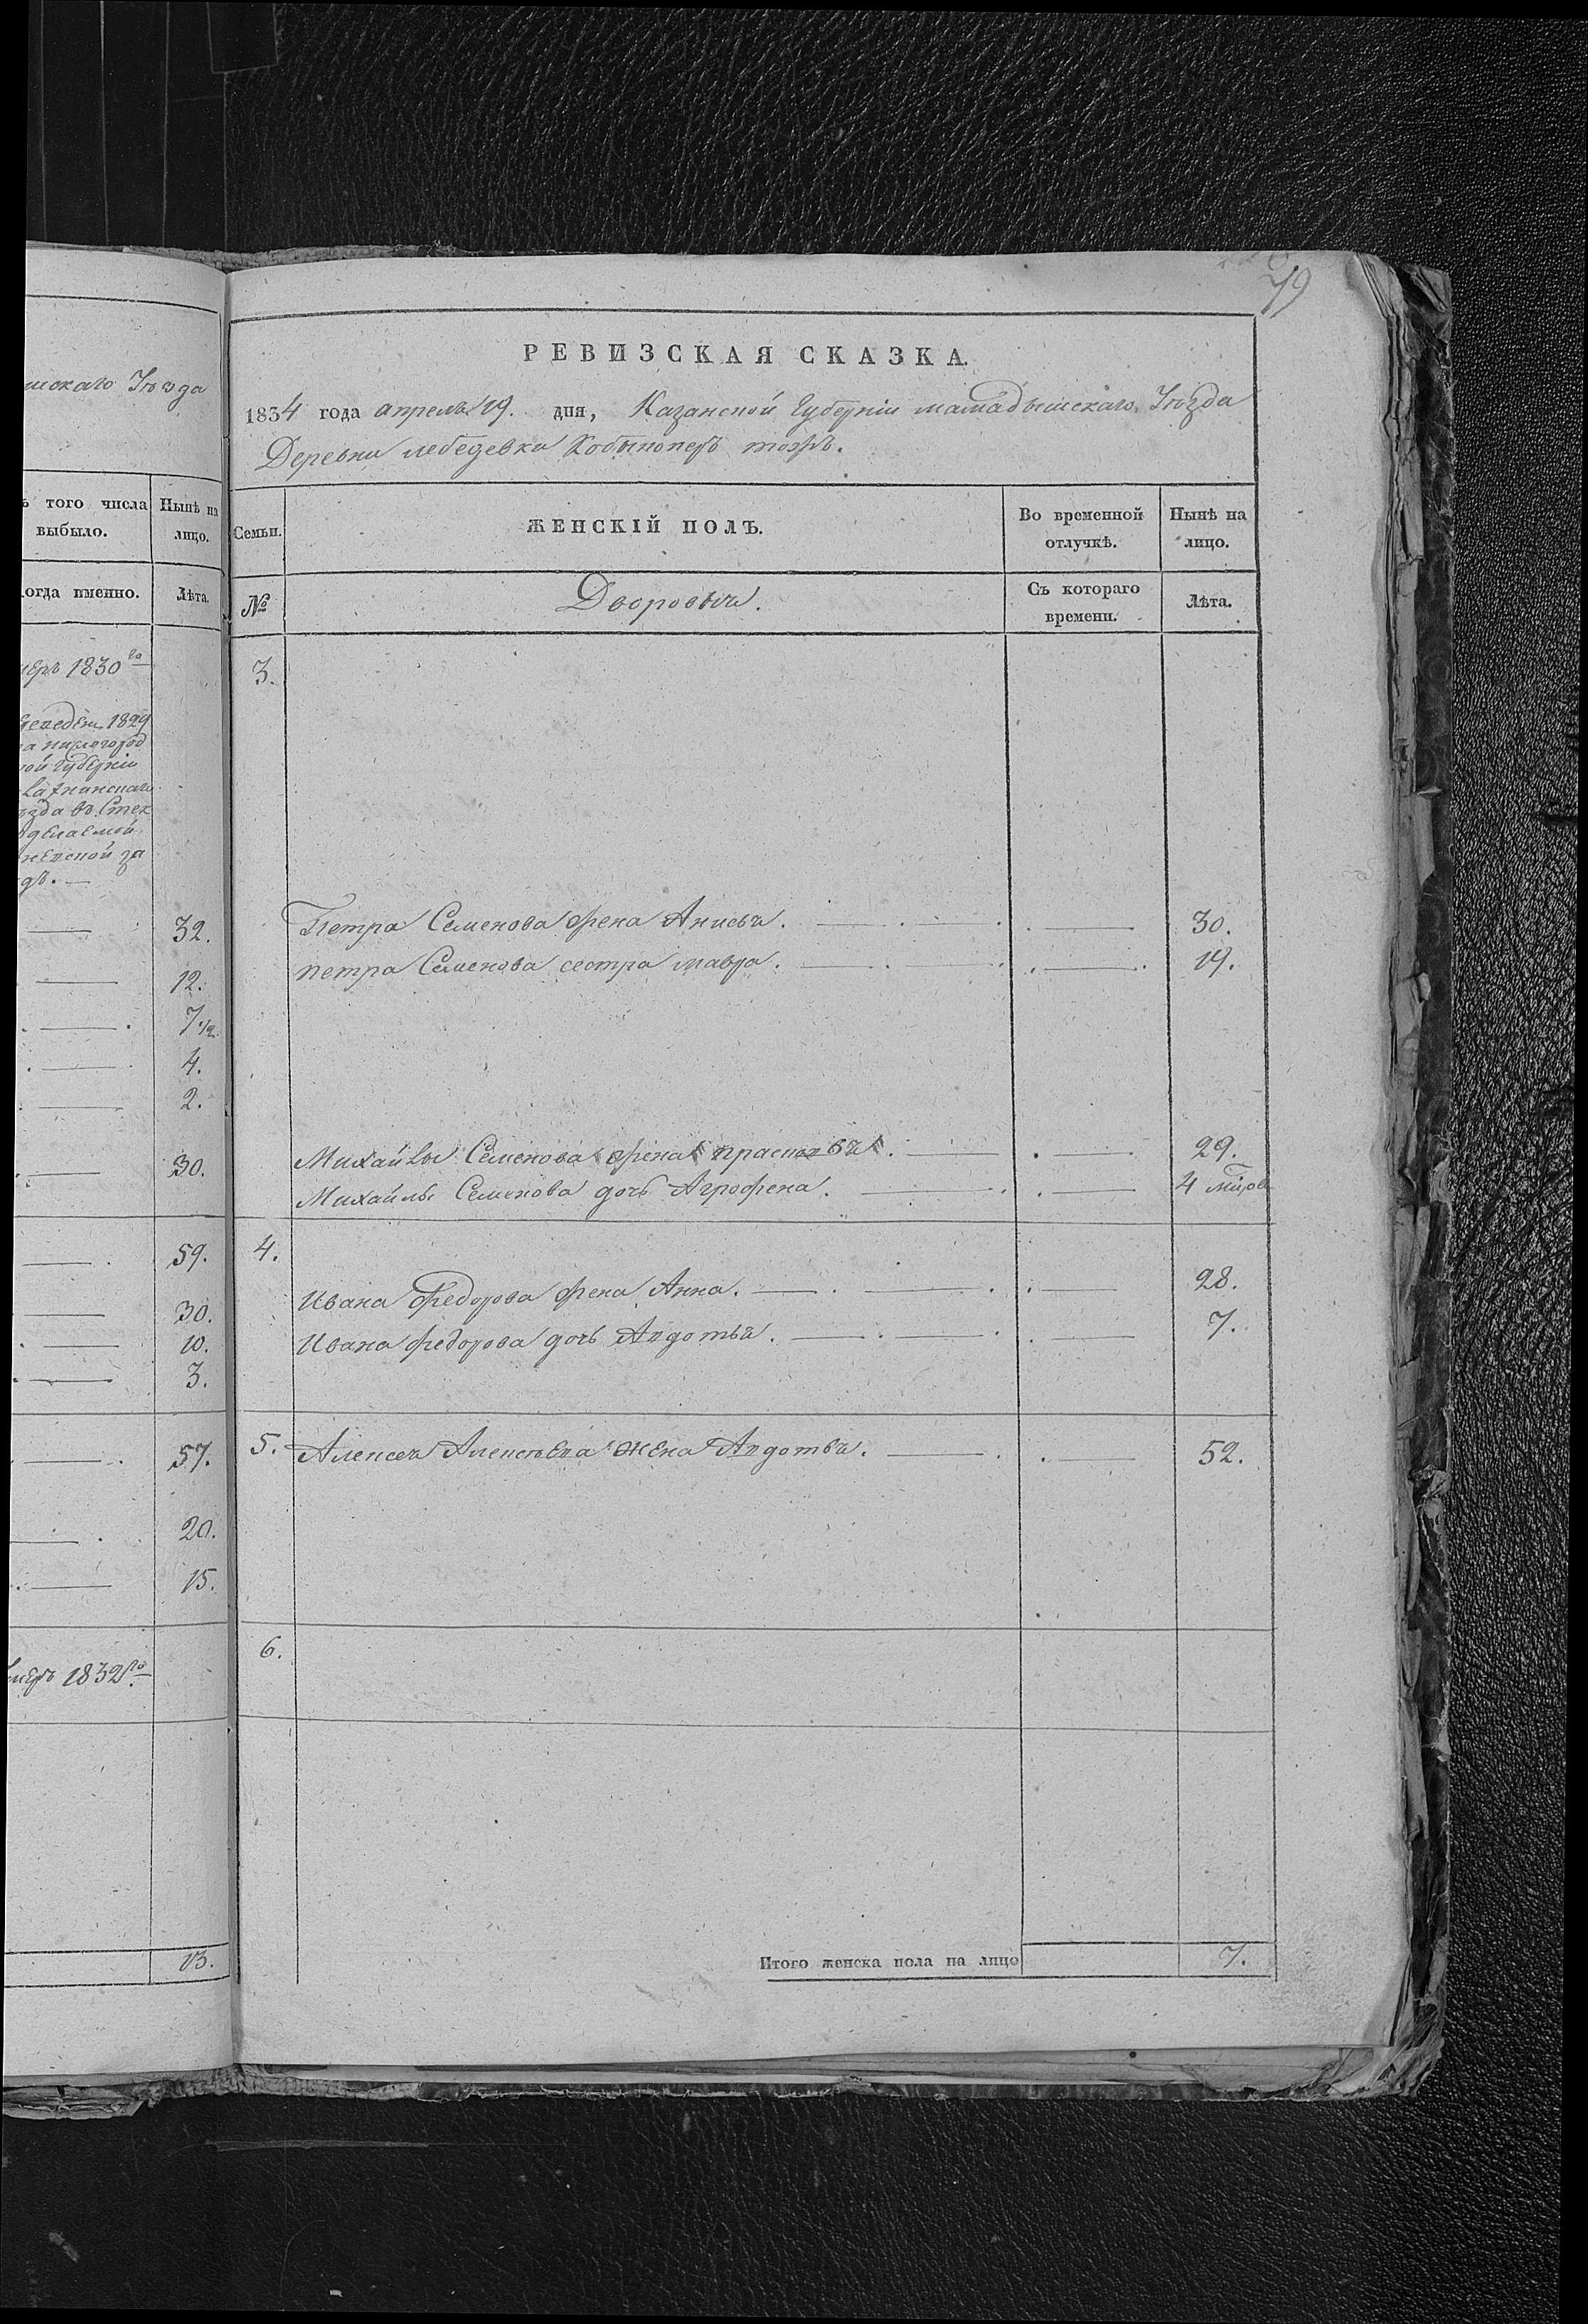 шскаго Уѣзда
того числа
выбыло.
Нынѣ на
лицо.
когда именно.
Лѣта.
1830 га
1829
ой губерніи
32.
12.
7 1/2.
4.
2.
30.
59.
30.
10.
3.
57.
20.
15.
умеръ 1832 го
13.
49
РЕВИЗСКАЯ СКАЗКА.
1834 года апреля 19. дня, Казанской губерніи мамадышскаго Уѣзда
Деревни лебедевки тожъ.
Семьи.
ЖЕНСКІЙ ПОЛЪ.
Во временной
отлучкѣ.
Нынѣ на
лицо.
№
Дворовыя.
Съ котораго
времени.
Лѣта.
3.
Петра Семенова жена Анисья. 30.
петра Семенова сестра мавра. 19.
Михайлы Семенова жена прасковья. 29.
Михайлы Семенова дочь Агрофена. 4
4.
Ивана Федорова жена Анна. 28.
Ивана федорова дочь Авдотья. 7.
5. Алексея Алексѣева жена Авдотья. 52.
6.
Итого женска пола на лицо 7.